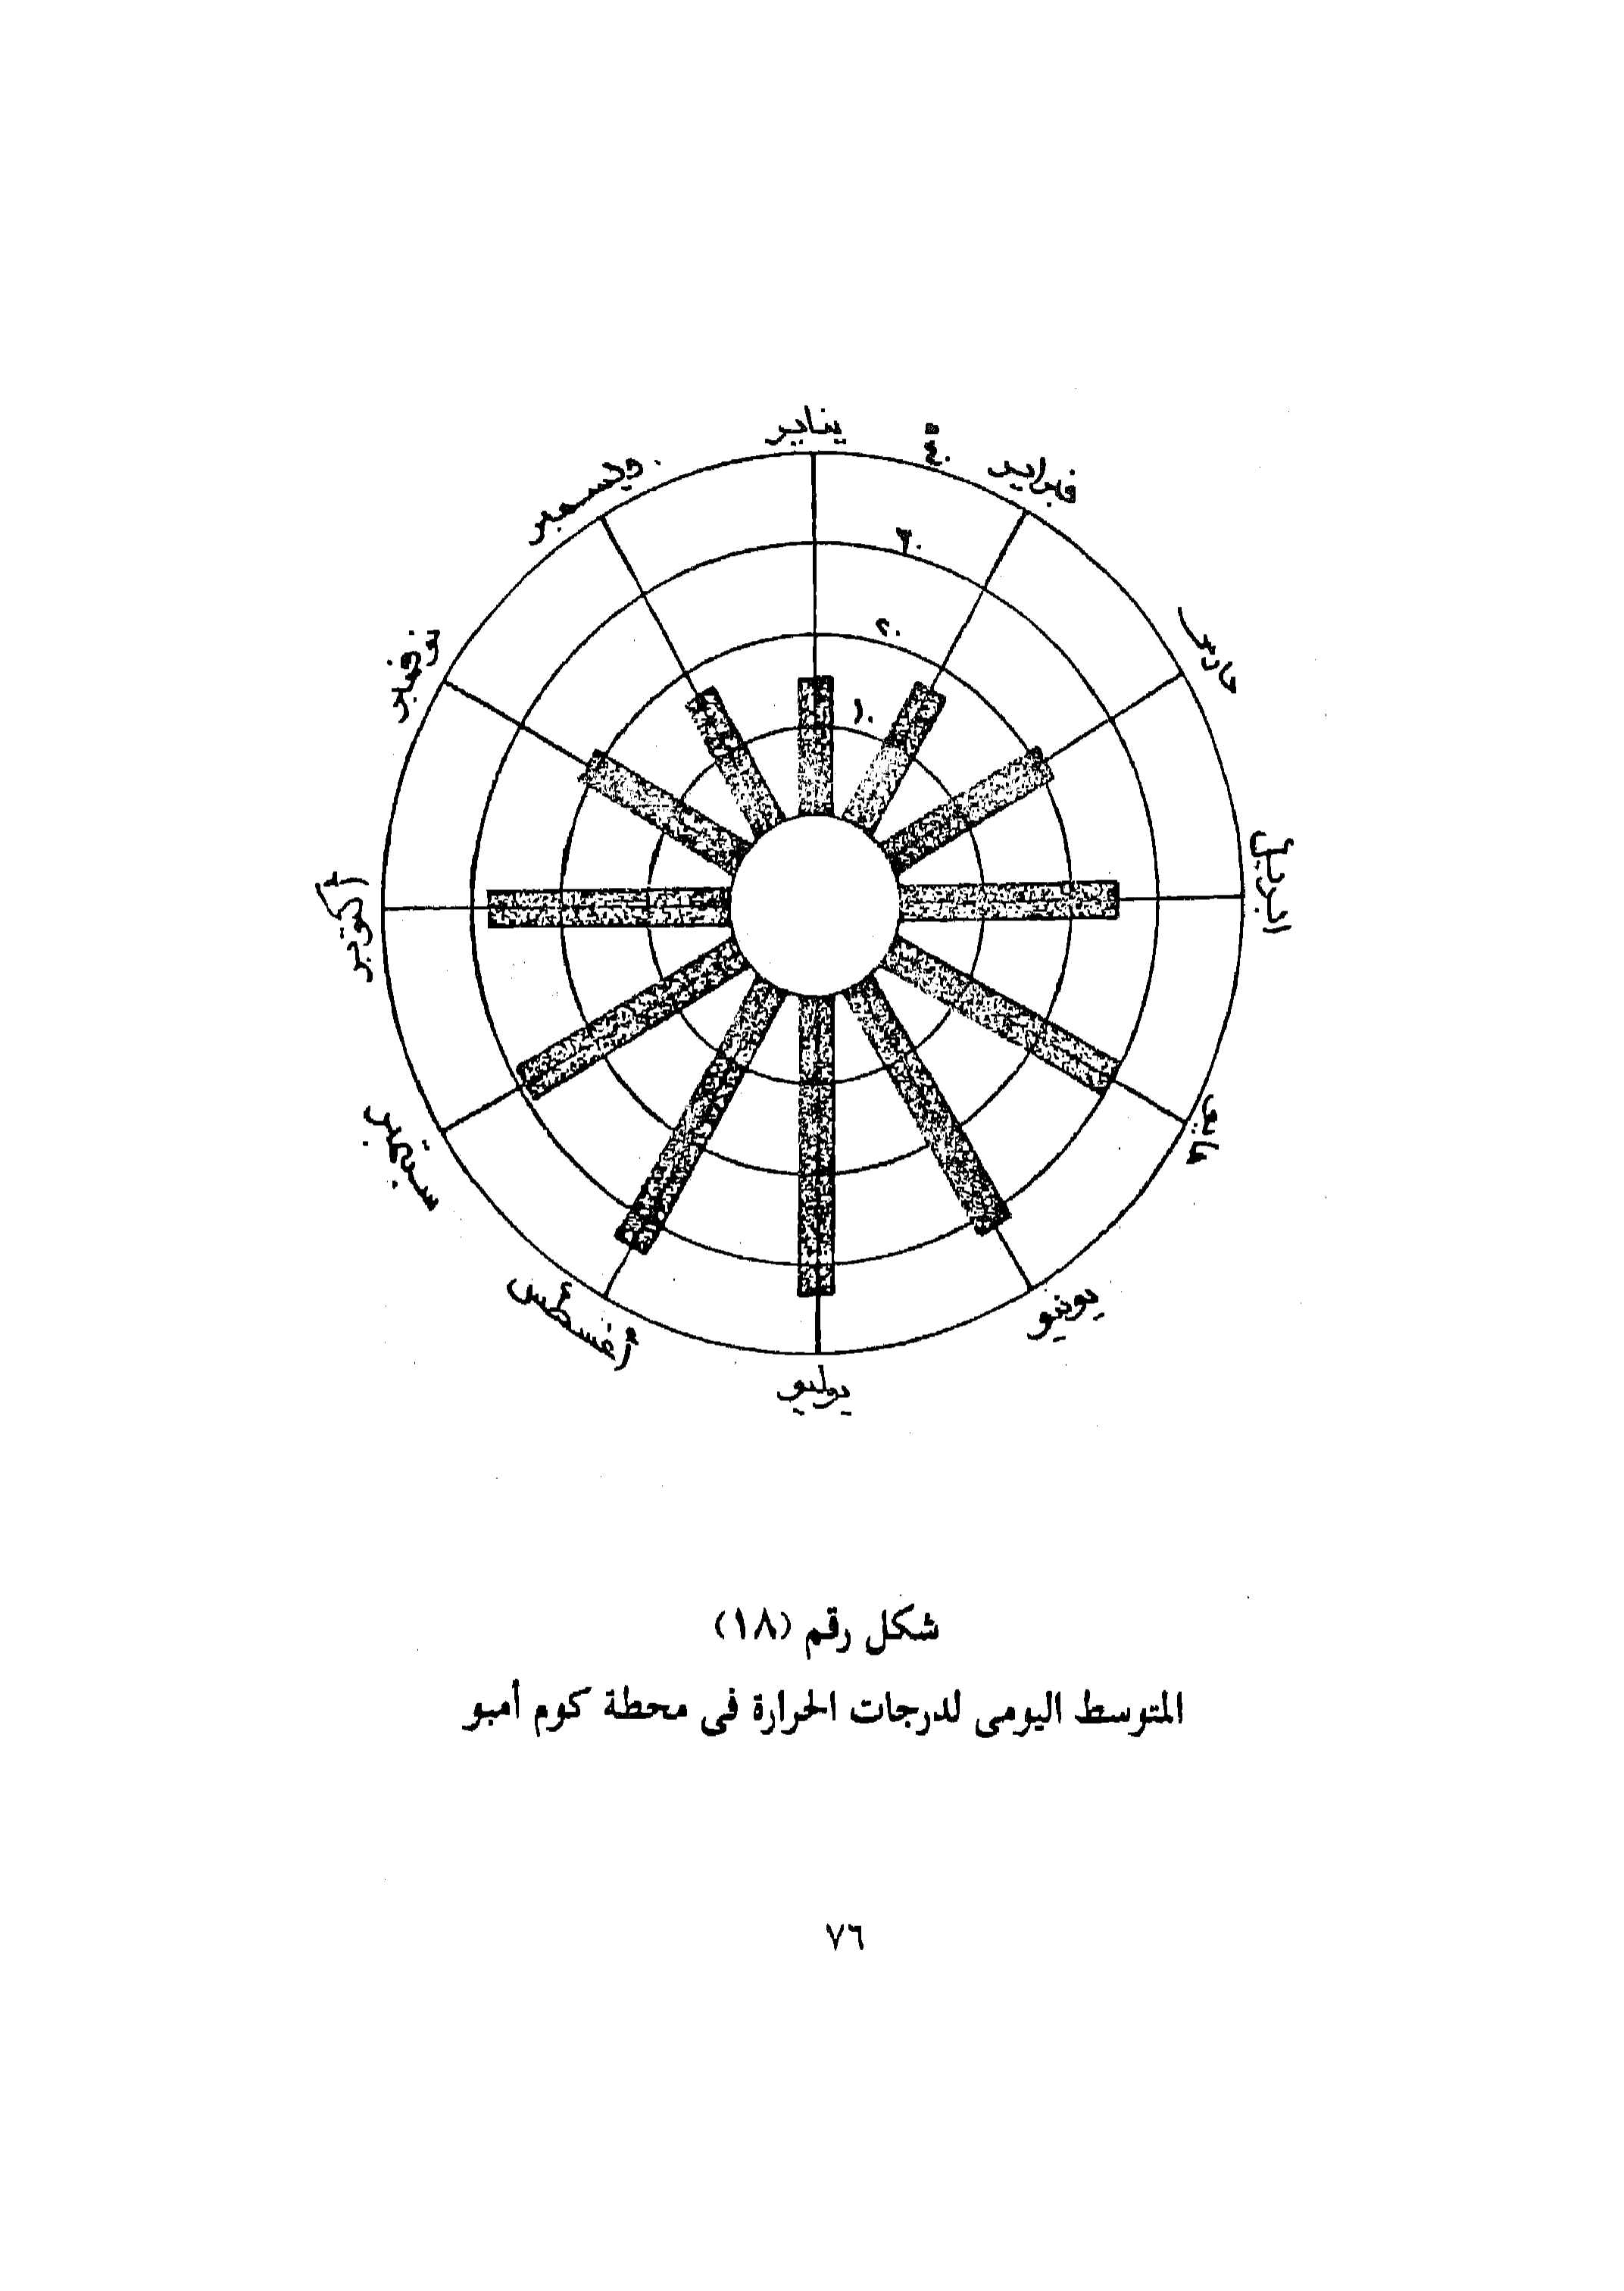 يناير
فبراير
مارس
ابريل
مايو
يونيو
يوليو
أغسطس
سبتمبر
أكتوبر
نوفمبر
ديسمبر
٤٠°
٣٠
٢٠
١٠
شكل رقم (١٨)
المتوسط اليومى لدرجات الحرارة فى محطة كوم أمبو
٧٦